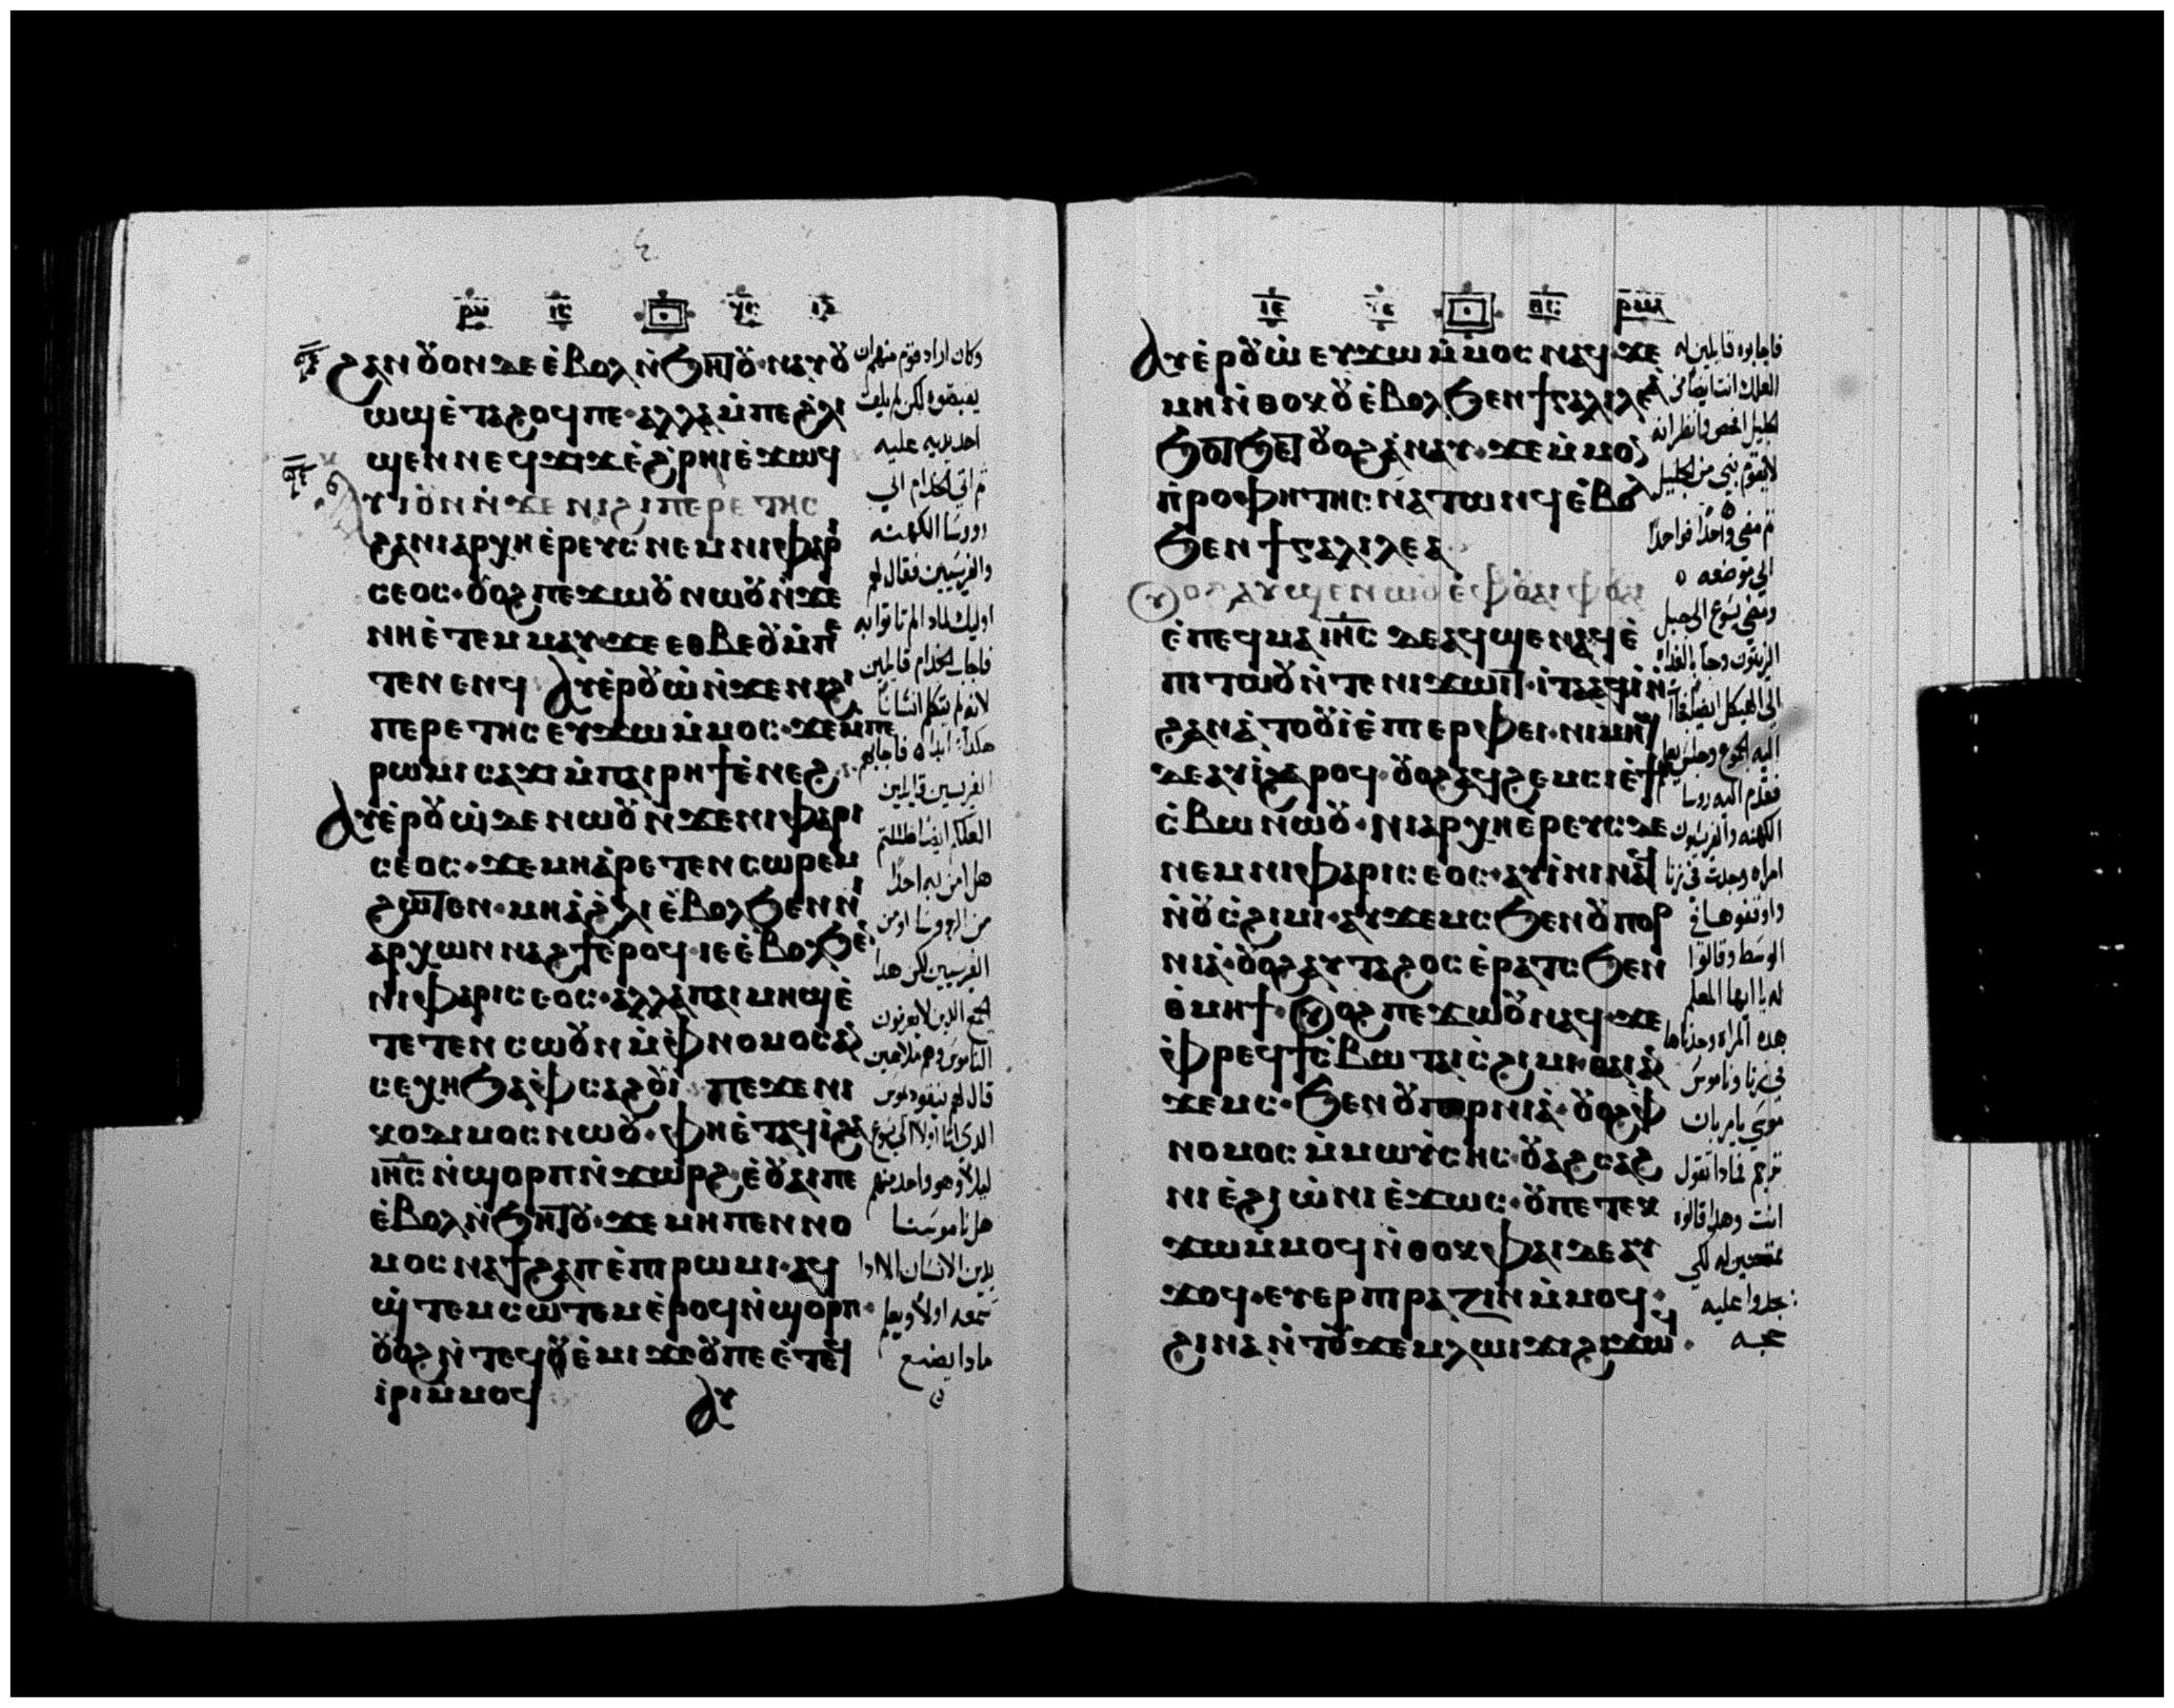 ϩⲁⲛⲟⲩⲟⲛ ⲇⲉ ⲉ̀ⲃⲟⲗ ⲛ̀ϧⲏⲧⲟⲩ · ⲛⲁⲩⲟⲩ
ⲱϣ ⲉ̀ⲧⲁϩⲟϥ ⲡⲉ · ⲁⲗⲗⲁ ⲙ̀ⲡⲉ ϩ̀ⲗⲓ
ϣⲉⲛ ⲛⲉϥϫⲓϫ ⲉ̀ϩ̀ⲣⲏⲓ ⲉ̀ϫⲱϥ
ⲩⲓ̀ ⲟⲩⲛ ⲛ̀ϫⲉ ⲛⲓϩⲓⲡⲉⲣⲉⲧⲏⲥ
ϩⲁ ⲛⲓⲁⲣⲭⲏⲉ̀ⲣⲉⲩⲥ ⲛⲉⲙ ⲛⲓⲫⲁⲣⲓ
ⲥⲉⲟⲥ · ⲟⲩⲟϩ ⲡⲉϫⲱⲟⲩ ⲛⲱⲟⲩ ⲛ̀ϫⲉ
ⲛⲏ ⲉ̀ⲧⲉⲙⲙⲁⲩ · ϫⲉ ⲉⲑⲃⲉⲟⲩ ⲙ̀ⲡⲉ
ⲧⲉⲛⲉⲛϥ ⲁⲩⲉ̀ⲣⲟⲩⲱ̀ ⲛ̀ϫⲉ ⲛⲓϩⲓ
ⲡⲉⲣⲉⲧⲏⲥ ⲉⲩϫⲱ ⲙ̀ⲙⲟⲥ · ϫⲉ ⲙ̀ⲡⲉ
ⲣⲱⲙⲓ ⲥⲁϫⲓ ⲙ̀ⲡⲁⲓⲣⲏϯ ⲉ̀ⲛⲉϩ
ⲁⲩⲉ̀ⲣⲟⲩⲱ̀ ⲇⲉ ⲛⲱⲟⲩ ⲛ̀ϫⲉ ⲛⲓⲫⲁⲣⲓ
ⲥⲉⲟⲥ · ϫⲉ ⲙⲏ ⲁ̀ⲣⲉⲧⲉⲛⲥⲱⲣⲉⲙ
ϩⲱⲧⲉⲛ · ⲙⲏ ⲁ̀ ϩ̀ⲗⲓ ⲉ̀ⲃⲟⲗ ϧⲉⲛ ⲛⲓ
ⲁⲣⲭⲱⲛ ⲛⲁϩϯ ⲉ̀ⲣⲟϥ · ⲓⲉ ⲉ̀ⲃⲟⲗ ϧⲉⲛ
ⲛⲓⲫⲁⲣⲓⲥⲉⲟⲥ · ⲁⲗⲗⲁ ⲡⲁⲓⲙⲏϣ ⲉ̀
ⲧⲉ ⲧⲉⲛⲥⲱⲟⲩⲛ ⲙ̀ⲫⲛⲟⲙⲟⲥ ⲁⲛ
ⲥⲉⲭⲏ ϧⲁ ⲫ̀ⲥⲁϩⲟⲩⲓ̀ ⲡⲉϫⲉ ⲛⲓ
ⲕⲟⲇⲓⲙⲟⲥ ⲛⲱⲟⲩ · ⲫⲏ ⲉ̀ⲧⲁϥⲓ̀ ϩⲁ
ⲓⲏⲥ ⲛ̀ϣⲟⲣⲡ ⲛ̀ϫⲱⲣϩ · ⲉ̀ⲟⲩⲁⲓ ⲡⲉ
ⲉ̀ⲃⲟⲗ ⲛ̀ϧⲏⲧⲟⲩ · ϫⲉ ⲙⲏ ⲡⲉⲛⲛⲟ
ⲙⲟⲥ ⲛⲁϯϩⲁⲡ ⲉ̀ⲡⲓⲣⲱⲙⲓ · ⲁϥ
ϣ̀ⲧⲉⲙⲥⲱⲧⲉⲙ ⲉ̀ⲣⲟϥ ⲛ̀ϣⲟⲣⲡ ·
ⲟⲩⲟϩ ⲛ̀ⲧⲉϥⲉ̀ⲙⲓ ϫⲉ ⲟⲩ ⲡⲉ ⲉ̀ⲧⲉϥ
ⲓ̀ⲣⲓ ⲙ̀ⲙⲟϥ ⲁⲩ
وكان اراد قوم منهم ان
يقبضوه لكن لم يلق
احد يديه عليه
ثم اتي الخدام الي
روسا الكهنه
والفريسيين فقال لهم
اوليك لماذا لم تاتوا به
فاجاب الخدام قايلين
لانه لم يتكلم انسانا
هكذا ابدا فاجابهم
الفريسيين قايلين
العلكم ايضا ضللتم
هل امن به احدا
من الروسا او من
الفريسيين لكن هذا
الجمع الذين لا يعرفون
الناموس وهم ملاعين
قال لهم نيقوديموس
الذي اتا اولا الي يسوع
ليلا وهو واحد منهم
هل ناموسنا
يدين الانسان الا اذا
سمعه اولا ويعلم
ماذا يصنع
ⲁⲩⲉ̀ⲣⲟⲩⲱ̀ ⲉⲩϫⲱ ⲙ̀ⲙⲟⲥ ⲛⲁϥ · ϫⲉ
ⲙⲏ ⲛ̀ⲑⲟⲕ ⲟⲩ ⲉ̀ⲃⲟⲗ ϧⲉⲛ ϯⲅⲁⲗⲓⲗⲉⲁ
ϧⲟⲧϧⲉⲧ ⲟⲩⲟϩ ⲁ̀ⲛⲁⲩ · ϫⲉ ⲙ̀ⲙⲟⲛ
ⲡ̀ⲣⲟⲫⲏⲧⲏⲥ ⲛⲁⲧⲱⲛϥ ⲉ̀ⲃⲟⲗ
ϧⲉⲛ ϯⲅⲁⲗⲓⲗⲉⲁ
ⲟⲩⲟϩ ⲁⲩϣⲉⲛⲱⲟⲩ ⲉ̀ ⲫⲟⲩⲁⲓ ⲫⲟⲩⲁⲓ
ⲉ̀ⲡⲉϥⲙⲁ ⲓⲏⲥ ⲇⲉ ⲁϥϣⲉⲛⲁϥ ⲉ̀
ⲡⲓⲧⲱⲟⲩ ⲛ̀ⲧⲉ ⲛⲓϫⲱⲓⲧ · ⲓⲧⲁ ⲁϥⲓ̀ ⲛ̀
ϩⲁⲛⲁ̀ⲧⲟⲟⲩⲓ̀ ⲉ̀ⲡⲓⲉⲣⲫⲉⲓ · ⲛⲓⲙⲏϣ
ⲇⲉ ⲁⲩⲓ̀ ϩⲁⲣⲟϥ · ⲟⲩⲟϩ ⲁϥϩⲉⲙⲥⲓ ⲉ̀ϯ
ⲥ̀ⲃⲱ ⲛⲱⲟⲩ · ⲛⲓⲁⲣⲭⲏⲉ̀ⲣⲉⲩⲥ ⲇⲉ
ⲛⲉⲙ ⲛⲓⲫⲁⲣⲓⲥⲉⲟⲥ · ⲁⲩⲓ̀ⲛⲓ ⲛⲁϥ
ⲛ̀ⲟⲩⲥ̀ϩⲓⲙⲓ · ⲁⲩϫⲉⲙⲥ ϧⲉⲛ ⲟⲩⲡⲟⲣ
ⲛⲓⲁ̀ · ⲟⲩⲟϩ ⲁⲩⲧⲁϩⲟⲥ ⲉ̀ⲣⲁⲧⲥ ϧⲉⲛ
ⲑ̀ⲙⲏϯ · ⲟⲩⲟϩ ⲡⲉϫⲱⲟⲩ ⲛⲁϥ · ϫⲉ
ⲫ̀ⲣⲉϥϯⲥ̀ⲃⲱ ⲧⲁⲓⲥ̀ϩⲓⲙⲓ ⲑⲁⲓ ⲁⲩ
ϫⲉⲙⲥ · ϧⲉⲛ ⲟⲩⲡⲟⲣⲛⲓⲁ̀ · ⲟⲩⲟϩ ⲫ̀
ⲛⲟⲙⲟⲥ ⲙ̀ⲙⲱⲩⲥⲏⲥ · ⲟⲩⲁϩⲥⲁϩ
ⲛⲓ ⲉ̀ϩⲓⲱ̀ⲛⲓ ⲉ̀ϫⲱⲥ · ⲟⲩ ⲡⲉⲧⲉⲕ
ϫⲱ ⲙ̀ⲙⲟϥ ⲛ̀ⲑⲟⲕ ⲫⲁⲓ ⲇⲉ ⲁⲩ
ϫⲟϥ · ⲉⲩⲉⲣⲡⲓⲣⲁⲍⲓⲛ ⲙ̀ⲙⲟϥ ·
ϩⲓⲛⲁ ⲛ̀ⲧⲟⲩϫⲉⲙ ⲗⲱⲓϫⲓ ϩⲓϫⲱϥ ·
فاجابوه قايلين له
العلك انت ايضا من
الجليل افحص وانظر انه
لا يقوم نبي من الجليل
ثم مضي واحدا فواحدا
الي موضعه
ومضي يسوع الي جبل
الزيتون وجا بالغداه
الي الهيكل ايضا فجا
اليه الجموع وجلس يعلم
فقدم اليه روسا
الكهنه والفريسيون
امراه وجدت في زنا
واوقفوها في
الوسط وقالوا
له يا ايها المعلم
هذه المراه وجدناها
في زنا وناموس
موسي يامر بان
ترجم فماذا تقول
انت وهذا قالوه
ممتحنين له لكي
يجدوا عليه
حجه